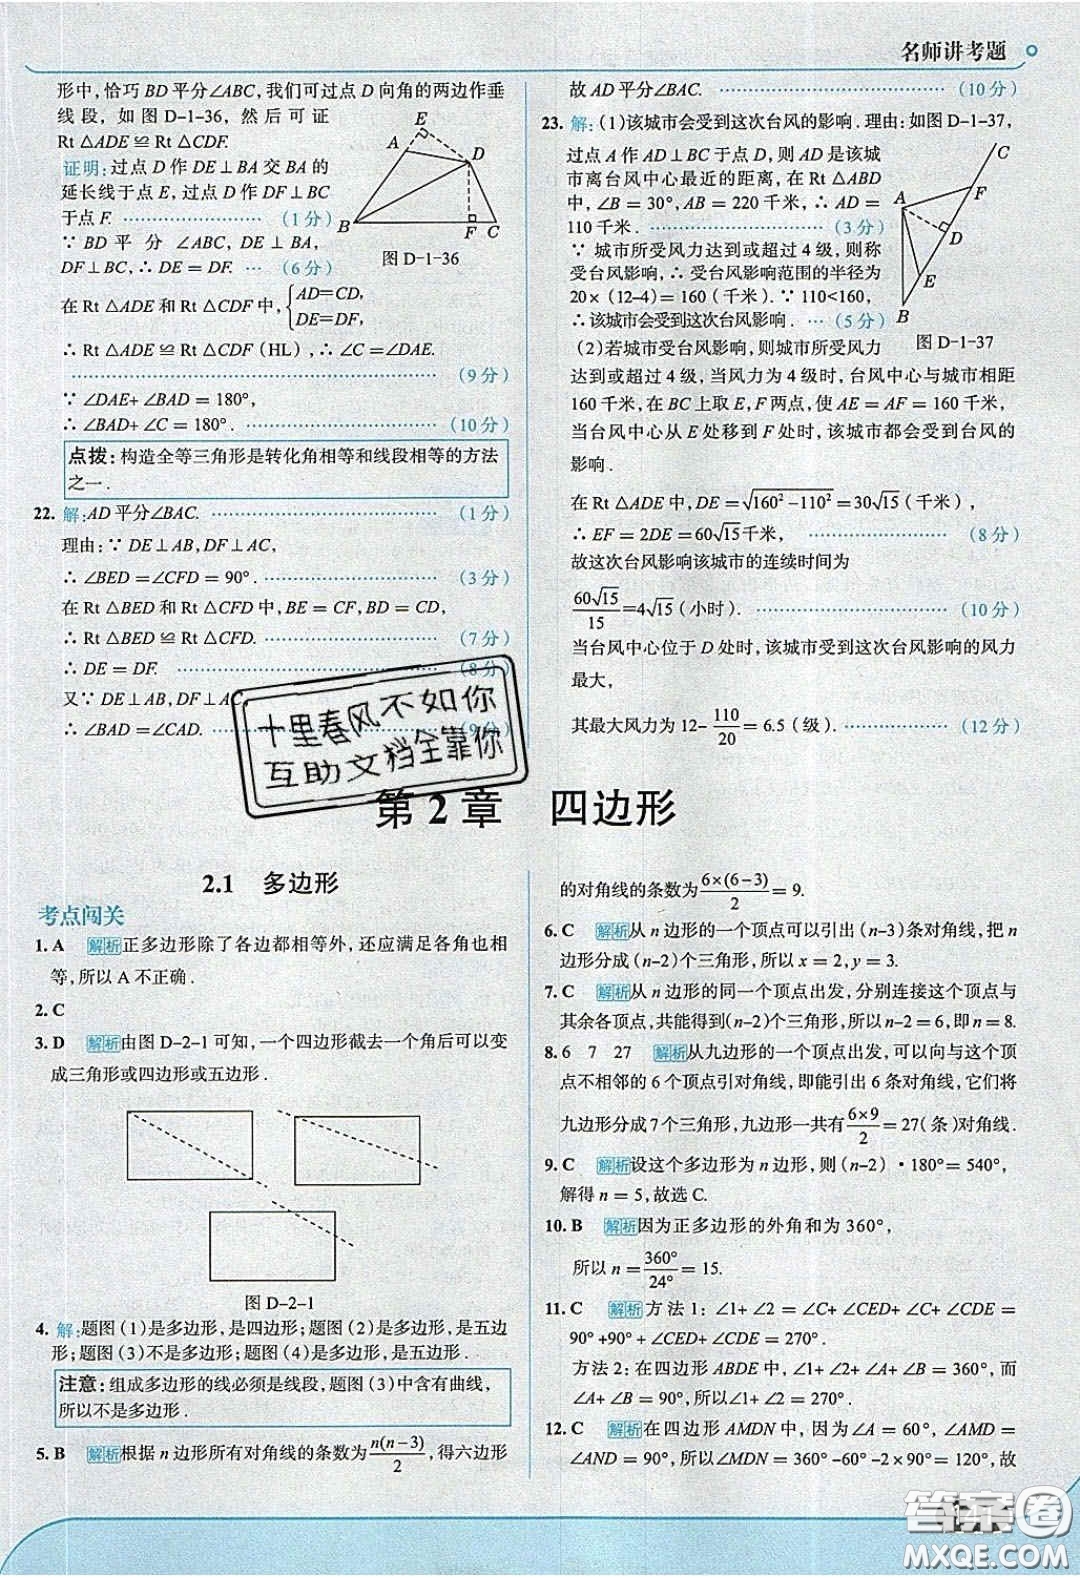 名师讲考题
形中，恰巧 BD 平分∠ABC，我们可过点 D 向角的两边作垂
线段，如图 D-1-36，然后可证
Rt △ADE ≌ Rt △CDF.
证明：过点 D 作 DE⊥BA 交 BA 的
延长线于点 E，过点 D 作 DF⊥BC
于点 F. ………………（1 分）
∵ BD 平分 ∠ABC, DE⊥BA,
DF⊥BC, ∴ DE = DF. …（6 分）
E
A
D
B
F
C
图 D-1-36
在 Rt △ADE 和 Rt △CDF 中, {AD=CD,
DE=DF,
∴ Rt △ADE ≌ Rt △CDF（HL）, ∴ ∠C =∠DAE.
………………（9 分）
∵ ∠DAE+ ∠BAD = 180°,
∴ ∠BAD+ ∠C = 180° . ………………（10 分）
点拨：构造全等三角形是转化角相等和线段相等的方法
之一 .
22. 解：AD 平分∠BAC. ………………（1 分）
理由：∵ DE⊥AB, DF⊥AC,
∴ ∠BED =∠CFD = 90° . ………………（3 分）
在 Rt △BED 和 Rt △CFD 中, BE = CF, BD = CD,
∴ Rt △BED ≌ Rt △CFD. ………………（7 分）
∴ DE = DF. ………………（8 分）
又∵ DE⊥AB, DF⊥AC,
∴ ∠BAD = ∠CAD. ………………（9 分）
十里春风不如你
互助文档全靠你
故 AD 平分∠BAC. ………………（10 分）
23. 解：(1)该城市会受到这次台风的影响 . 理由：如图 D-1-37,
过点 A 作 AD⊥BC 于点 D，则 AD 是该
城市离台风中心最近的距离，在 Rt △ABD
中，∠B = 30°, AB = 220 千米, ∴ AD =
110 千米 . ………………（3 分）
∵ 城市所受风力达到或超过 4 级，则称
受台风影响，∴ 受台风影响范围的半径为
20×（12-4）= 160（千米）. ∵ 110<160,
∴ 该城市会受到这次台风影响 . …（5 分）
C
F
A
D
E
B
图 D-1-37
（2）若城市受台风影响，则城市所受风力
达到或超过 4 级，当风力为 4 级时，台风中心与城市相距
160 千米，在 BC 上取 E, F 两点，使 AE = AF = 160 千米，
当台风中心从 E 处移到 F 处时，该城市都会受到台风的
影响 .
在 Rt △ADE 中, DE = √(160² −110²) = 30√15（千米）,
∴ EF = 2DE = 60√15 千米, ………………（8 分）
故这次台风影响该城市的连续时间为
60√15/15 = 4√15（小时）. ………………（10 分）
当台风中心位于 D 处时，该城市受到这次台风影响的风力
最大，
其最大风力为 12- 110/20 = 6.5（级）. ………………（12 分）
第 2 章 四边形
2.1 多边形
考点闯关
1. A 解析 正多边形除了各边都相等外，还应满足各角也相
等，所以 A 不正确 .
2. C
3. D 解析 由图 D-2-1 可知，一个四边形截去一个角后可以变
成三角形或四边形或五边形 .
图 D-2-1
4. 解：题图（1）是多边形，是四边形；题图（2）是多边形，是五边
形；题图（3）不是多边形；题图（4）是多边形，是五边形 .
注意：组成多边形的线必须是线段，题图（3）中含有曲线，
所以不是多边形 .
5. B 解析 根据 n 边形所有对角线的条数为 n(n−3)/2，得六边形
的对角线的条数为 6×(6−3)/2 = 9.
6. C 解析 从 n 边形的一个顶点可以引出（n–3）条对角线，把 n
边形分成（n–2）个三角形，所以 x = 2, y = 3.
7. C 解析 从 n 边形的同一个顶点出发，分别连接这个顶点与
其余各顶点，共能得到(n–2)个三角形，所以 n–2 = 6，即 n = 8.
8. 6 7 27 解析 从九边形的一个顶点出发，可以向与这个顶
点不相邻的 6 个顶点引对角线，即能引出 6 条对角线，它们将
九边形分成 7 个三角形，九边形一共有 6×9/2 = 27（条）对角线 .
9. C 解析 设这个多边形为 n 边形，则（n–2）·180°= 540°,
解得 n = 5，故选 C.
10. B 解析 因为正多边形的外角和为 360°,
所以 n = 360°/24° = 15.
11. C 解析 方法 1：∠1+ ∠2 = ∠C+ ∠CED+ ∠C+ ∠CDE =
90° +90° + ∠CED+ ∠CDE = 270° .
方法 2：在四边形 ABDE 中，∠1+ ∠2+ ∠A+ ∠B = 360°，而
∠A+ ∠B = 90°，所以∠1+ ∠2 = 270° .
12. C 解析 在四边形 AMDN 中，因为∠A = 60°, ∠AMD =
∠AND = 90°，所以∠MDN = 360° –60° –2×90°= 120°，故
答案圈
MXQE.COM